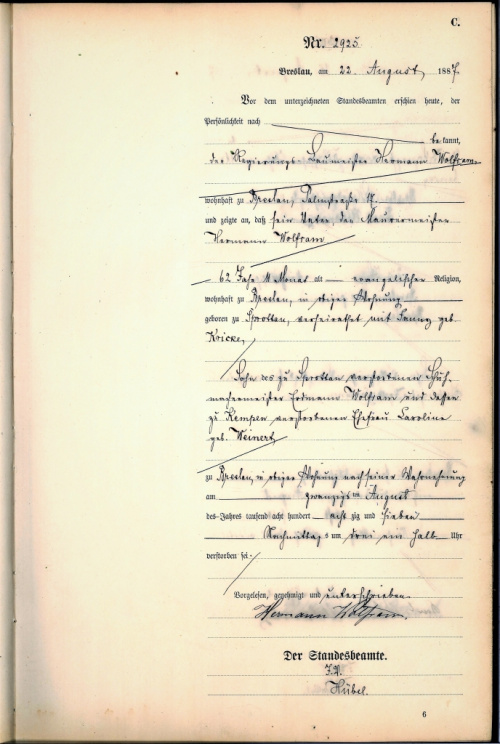 C.
Nr. 2925
Breslau, am 22 August 1887.
Vor dem unterzeichneten Standesbeamten erschien heute, der
Persönlichkeit nach
bekannt,
der Regierungs-Baumeister Hermann Wolfram
wohnhaft zu Breslau, Palmstraße 17
und zeigte an, daß sein Vater der Maurermeister
Hermann Wolfram
62 Jahr 11 Monat alt evangelischer Religion,
wohnhaft zu Breslau, in obiger Wohnung
geboren zu Sprottau, verheirathet mit Fanny geb.
Kricke,
Sohn des zu Sprottau verstorbenen Schuh-
machermeister Erdmann Wolfram und dessen
zu Kempen verstorbenen Ehefrau Caroline
geb. Weinert,
zu Breslau, in obiger Wohnung nach seiner Wahrnehmung
am zwanzigsten August
des Jahres tausend acht hundert acht zig und sieben
Nachmittags um drei ein halb Uhr
verstorben sei.
Vorgelesen, genehmigt und unterschrieben
Hermann Wolfram.
Der Standesbeamte.
I.V.
Hübel.
6